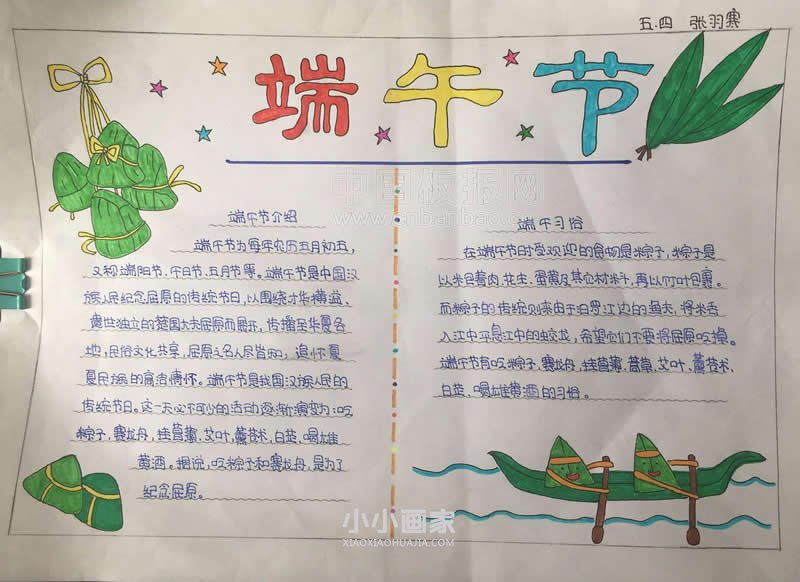 五.四 张羽寒
端午节
中国板报网
www.cnbanbao.cn
端午节介绍
端午节为每年农历五月初五,
又称端阳节、午日节、五月节等。端午节是中国汉
族人民纪念屈原的传统节日,以围绕才华横溢、
遗世独立的楚国大夫屈原而展开,传播至华夏各
地,民俗文化共享,屈原之名人尽皆知,追怀夏
夏民族的高洁情怀。端午节是我国汉族人民的
传统节日。这一天必不可少的活动逐渐演变为:吃
粽子,赛龙舟,挂菖蒲、艾叶,薰苍术,白芷,喝雄
黄酒。据说,吃粽子和赛龙舟,是为了
纪念屈原。
端午习俗
在端午节时受欢迎的食物是粽子,粽子是
以米包着肉、花生、蛋黄及其他材料,再以竹叶包裹。
而粽子的传统则来由于汨罗江边的渔夫,将米丢
入江中平息江中的蛟龙,希望他们不要将屈原吃掉。
端午节有吃粽子、赛龙舟、挂菖蒲、蒿草、艾叶、薰苍术、
白芷、喝雄黄酒的习俗。
小小画家
XIAOXIAOHUAJIA.COM